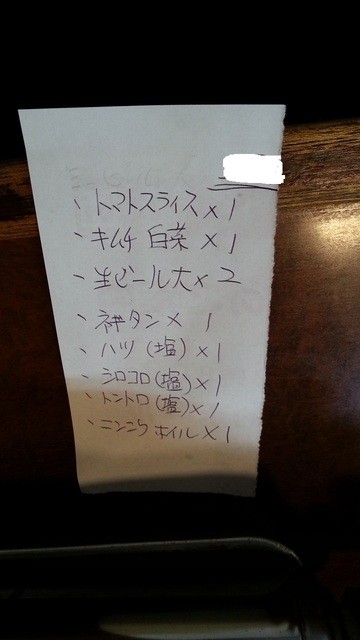 、トマトスライス x 1
、キムチ 白菜 x 1
、生ビール大 x 2
、神タン x 1
、ハツ (塩) x 1
、シロコロ (塩) x 1
、トントロ (塩) x 1
、ニンニク ホイル x 1